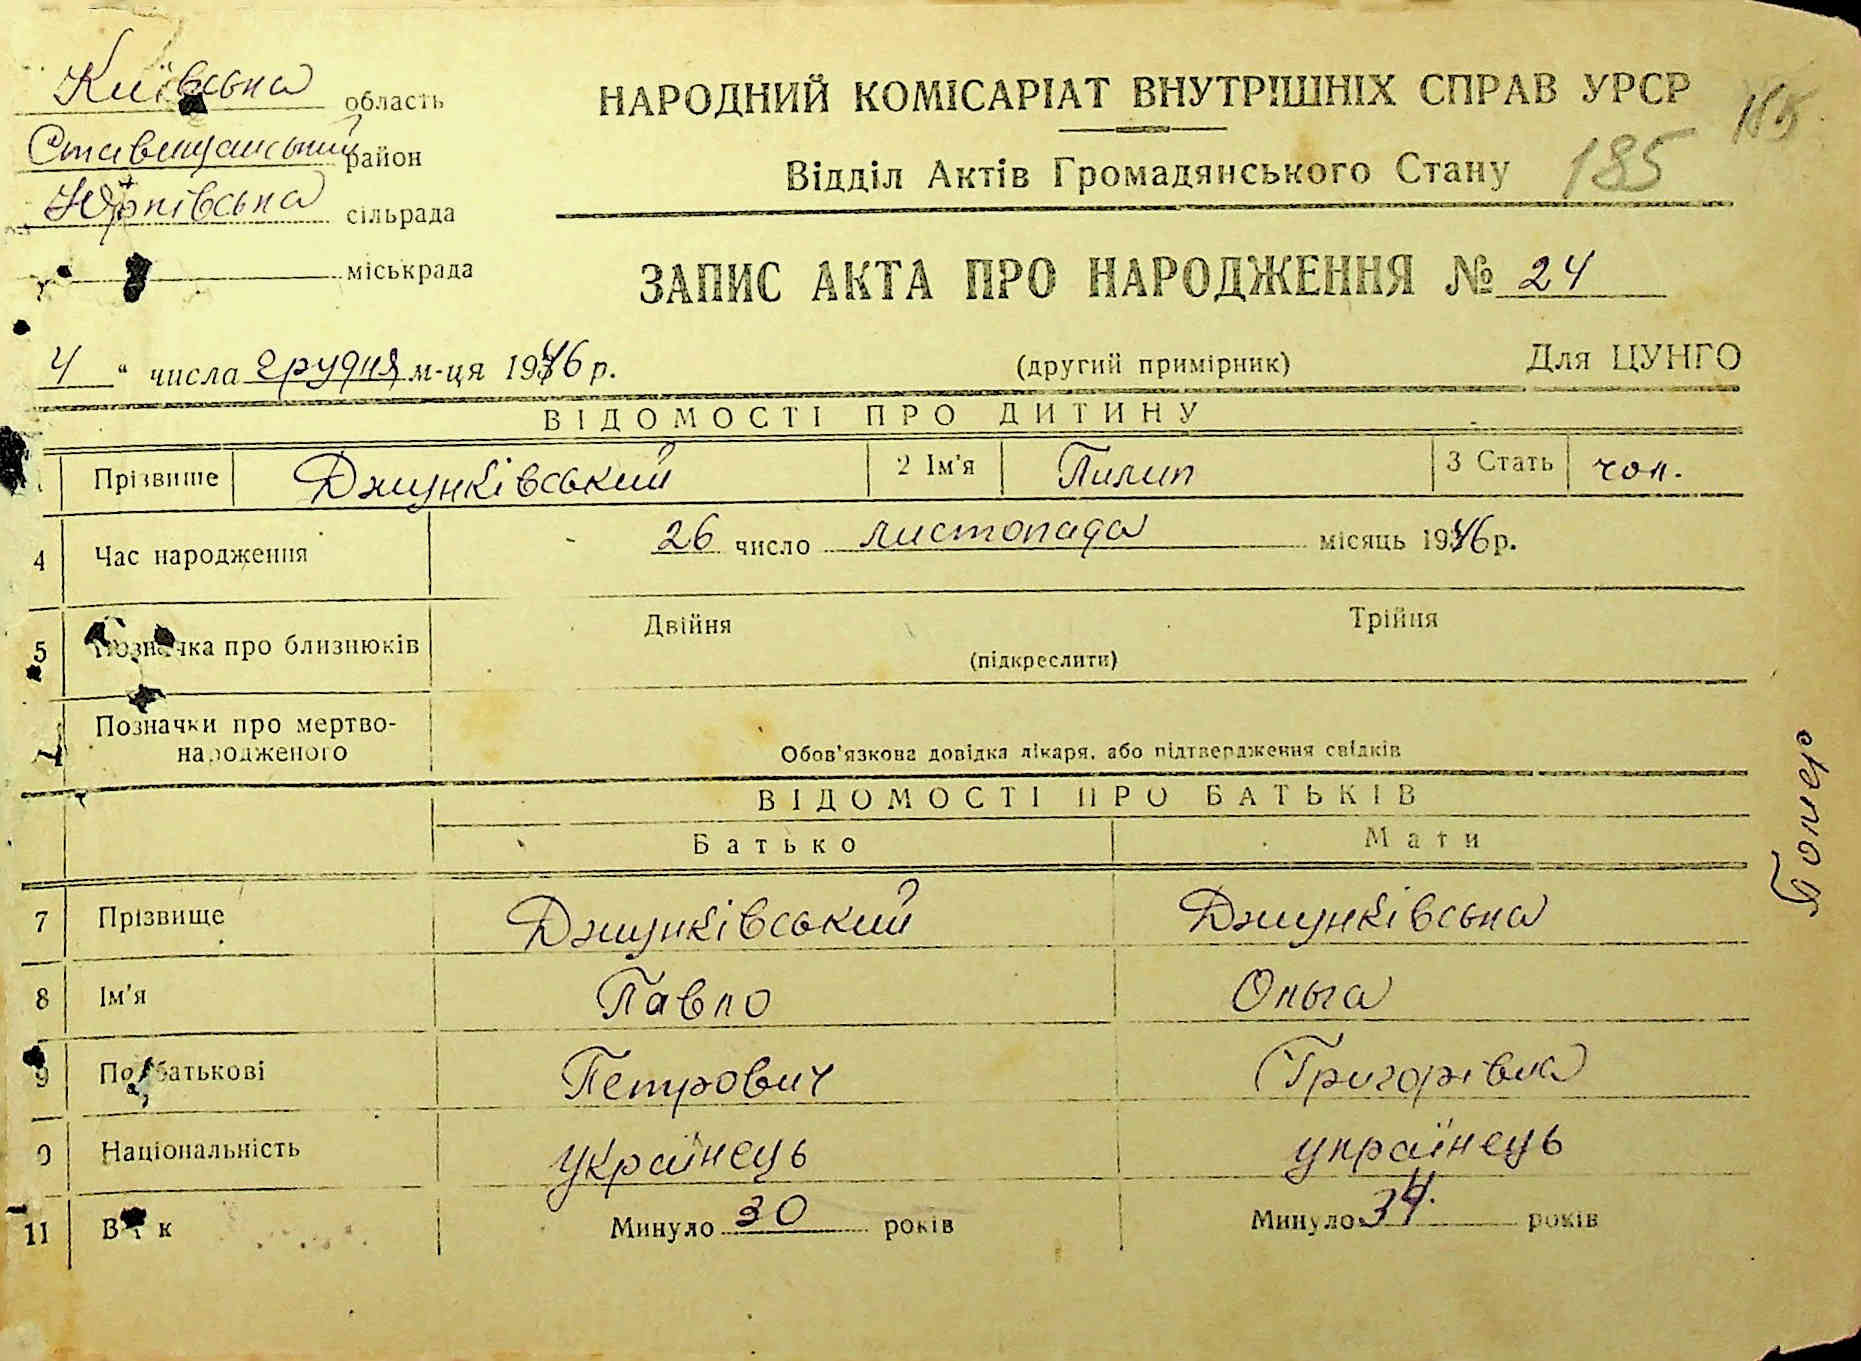 Київська область
Ставищанський район
Юрківська сільрада
міськрада
НАРОДНИЙ КОМІСАРІАТ ВНУТРІШНІХ СПРАВ УРСР
Відділ Актів Громадянського Стану 185
ЗАПИС АКТА ПРО НАРОДЖЕННЯ № 24
4 " числа грудня м-ця 1946 р. (другий примірник) Для ЦУНГО
ВІДОМОСТІ ПРО ДИТИНУ
Прізвище Джунківський 2 Ім'я Пилип 3 Стать чол.
4 Час народження 26 число листопада місяць 1946 р.
5 Позначка про близнюків Двійня Трійня
(підкреслити)
Позначки про мертво-
народженого Обов'язкова довідка лікаря, або підтвердження свідків
ВІДОМОСТІ ПРО БАТЬКІВ
Батько Мати
7 Прізвище Джунківський Джунківська
8 Ім'я Павло Ольга
9 По батькові Петрович Григорівна
0 Національність українець українець
11 Вік Минуло 30 років Минуло 34 років